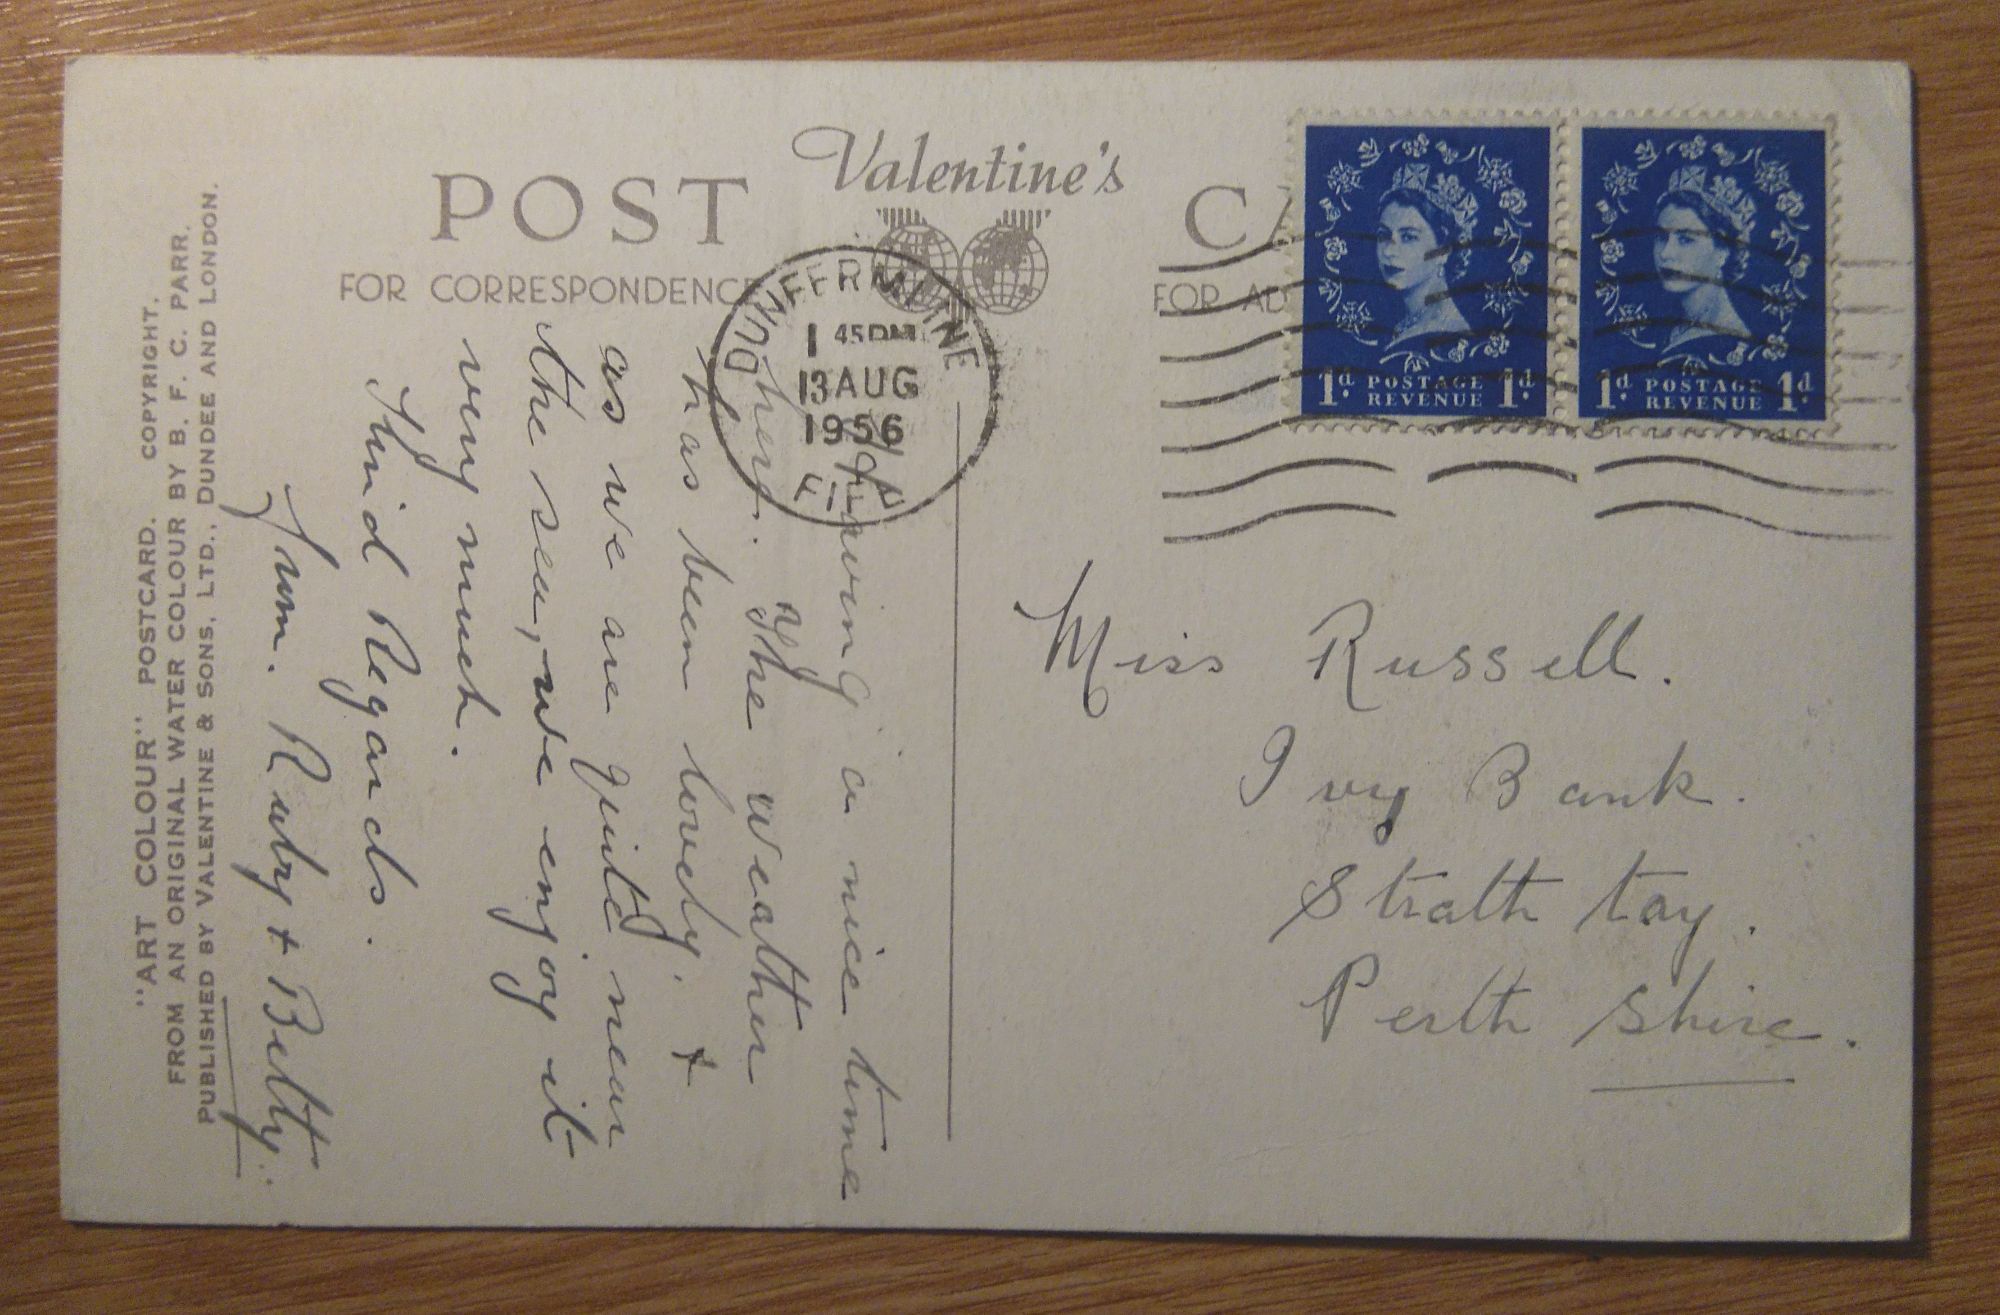 Valentine's
POST CA
FOR CORRESPONDENCE FOR AD
DUNFERMLINE
1 45PM
13 AUG
1956
FIFE
1d POSTAGE REVENUE 1d
1d POSTAGE REVENUE 1d
Having a nice time
here. The weather
has been lovely. +
as we are quite near
the sea, we enjoy it
very much.
Kind Regards.
From. Ruby + Betty.
"ART COLOUR" POSTCARD. COPYRIGHT.
FROM AN ORIGINAL WATER COLOUR BY B. F. C. PARR.
PUBLISHED BY VALENTINE & SONS, LTD., DUNDEE AND LONDON.
Miss Russell.
Ivy Bank.
Strath tay.
Perth shire.